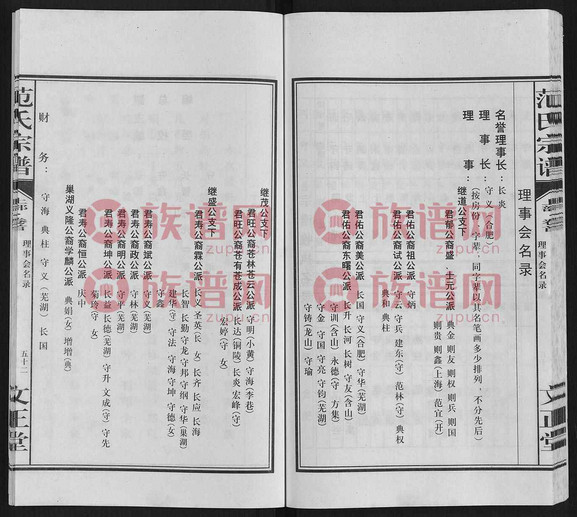 范氏宗谱
理事会名录
文正堂
理事会名录
名誉理事长：长炎
理事长：守义（合肥）
理事：（按房份、字辈，同字辈以其名笔画多少排列，不分先后）
继道公支下
君郁公裔盛、士元公派
典金 则友 则权 则兵 则国
则贵 则鑫（上海） 范宜（开）
君佑公裔祖公派 守炳
君佑公裔试公派 守云 守兵 建东（守） 范林（守） 典权
典和 典柱
君佑公裔美公派 长国 守义（合肥） 守华（芜湖）
君佑公裔东曙公派 长升 长河 长树 守友（含山）
守训（含山） 永德（守） 方集
守铸（龙山） 守瑜 守亮 守钧（芜湖）
继茂公支下
君旺公裔苍林苍云公派 守明（小黄） 守海（李巷）
君旺公裔苍有苍成公派 长达（铜陵） 长炎 宏峰（守）
宏娇（守）（女）
继盛公支下
君寿公裔霖公派 长义 圣英 长 女） 长齐 长应 长海
长智 长勤 守龙 守邦 守纲 守华（巢湖）
建华（守） 守法 守海 守坤 守德（女）
守鑫
君寿公裔斌公派 守义（芜湖）
君寿公裔政公派 守林（芜湖）
君寿公裔明公派 守平（芜湖）
君寿公裔坤公派 长益 长德（芜湖） 守升 文成（守） 守先
菊琦（守）（女）
君寿公裔恒公派 庆中
巢湖义隆公裔学麟公派 典娟（女） 增增（典）
财务：守海 典柱 守义（芜湖） 长国
范氏宗谱
理事会名录
五十二
文正堂
族谱网
zupu.cn
族谱网
zupu.cn